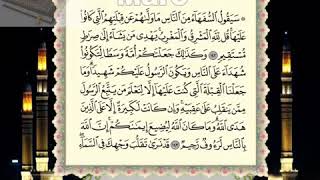 ۞ سَيَقُولُ ٱلسُّفَهَآءُ مِنَ ٱلنَّاسِ مَا وَلَّىٰهُمْ عَن قِبْلَتِهِمُ ٱلَّتِى كَانُوا۟
عَلَيْهَا ۚ قُل لِّلَّهِ ٱلْمَشْرِقُ وَٱلْمَغْرِبُ ۚ يَهْدِى مَن يَشَآءُ إِلَىٰ صِرَٰطٍ
مُّسْتَقِيمٍ ١٤٢ وَكَذَٰلِكَ جَعَلْنَٰكُمْ أُمَّةً وَسَطًا لِّتَكُونُوا۟
شُهَدَآءَ عَلَى ٱلنَّاسِ وَيَكُونَ ٱلرَّسُولُ عَلَيْكُمْ شَهِيدًا ۗ وَمَا
جَعَلْنَا ٱلْقِبْلَةَ ٱلَّتِى كُنتَ عَلَيْهَآ إِلَّا لِنَعْلَمَ مَن يَتَّبِعُ ٱلرَّسُولَ
مِمَّن يَنقَلِبُ عَلَىٰ عَقِبَيْهِ ۚ وَإِن كَانَتْ لَكَبِيرَةً إِلَّا عَلَى ٱلَّذِينَ
هَدَى ٱللَّهُ ۗ وَمَا كَانَ ٱللَّهُ لِيُضِيعَ إِيمَٰنَكُمْ ۚ إِنَّ ٱللَّهَ
بِٱلنَّاسِ لَرَءُوفٌ رَّحِيمٌ ١٤٣ قَدْ نَرَىٰ تَقَلُّبَ وَجْهِكَ فِى ٱلسَّمَآءِ